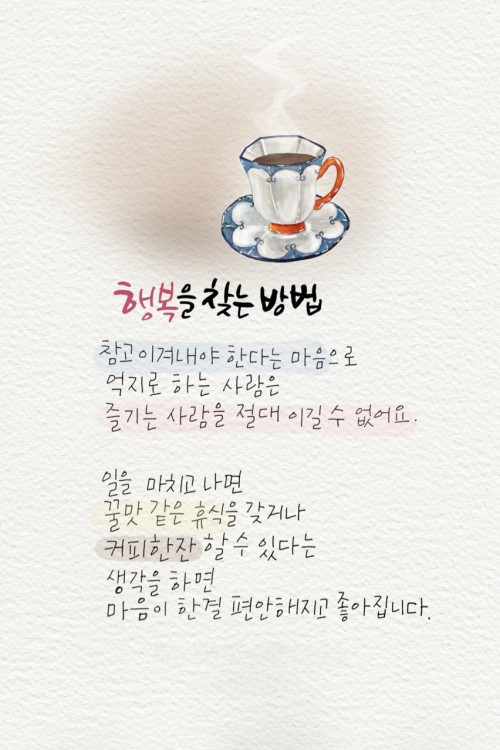 행복을 찾는 방법
참고 이겨내야 한다는 마음으로
억지로 하는 사람은
즐기는 사람을 절대 이길 수 없어요.
일을 마치고 나면
꿀맛 같은 휴식을 갖거나
커피한잔 할 수 있다는
생각을 하면
마음이 한결 편안해지고 좋아집니다.